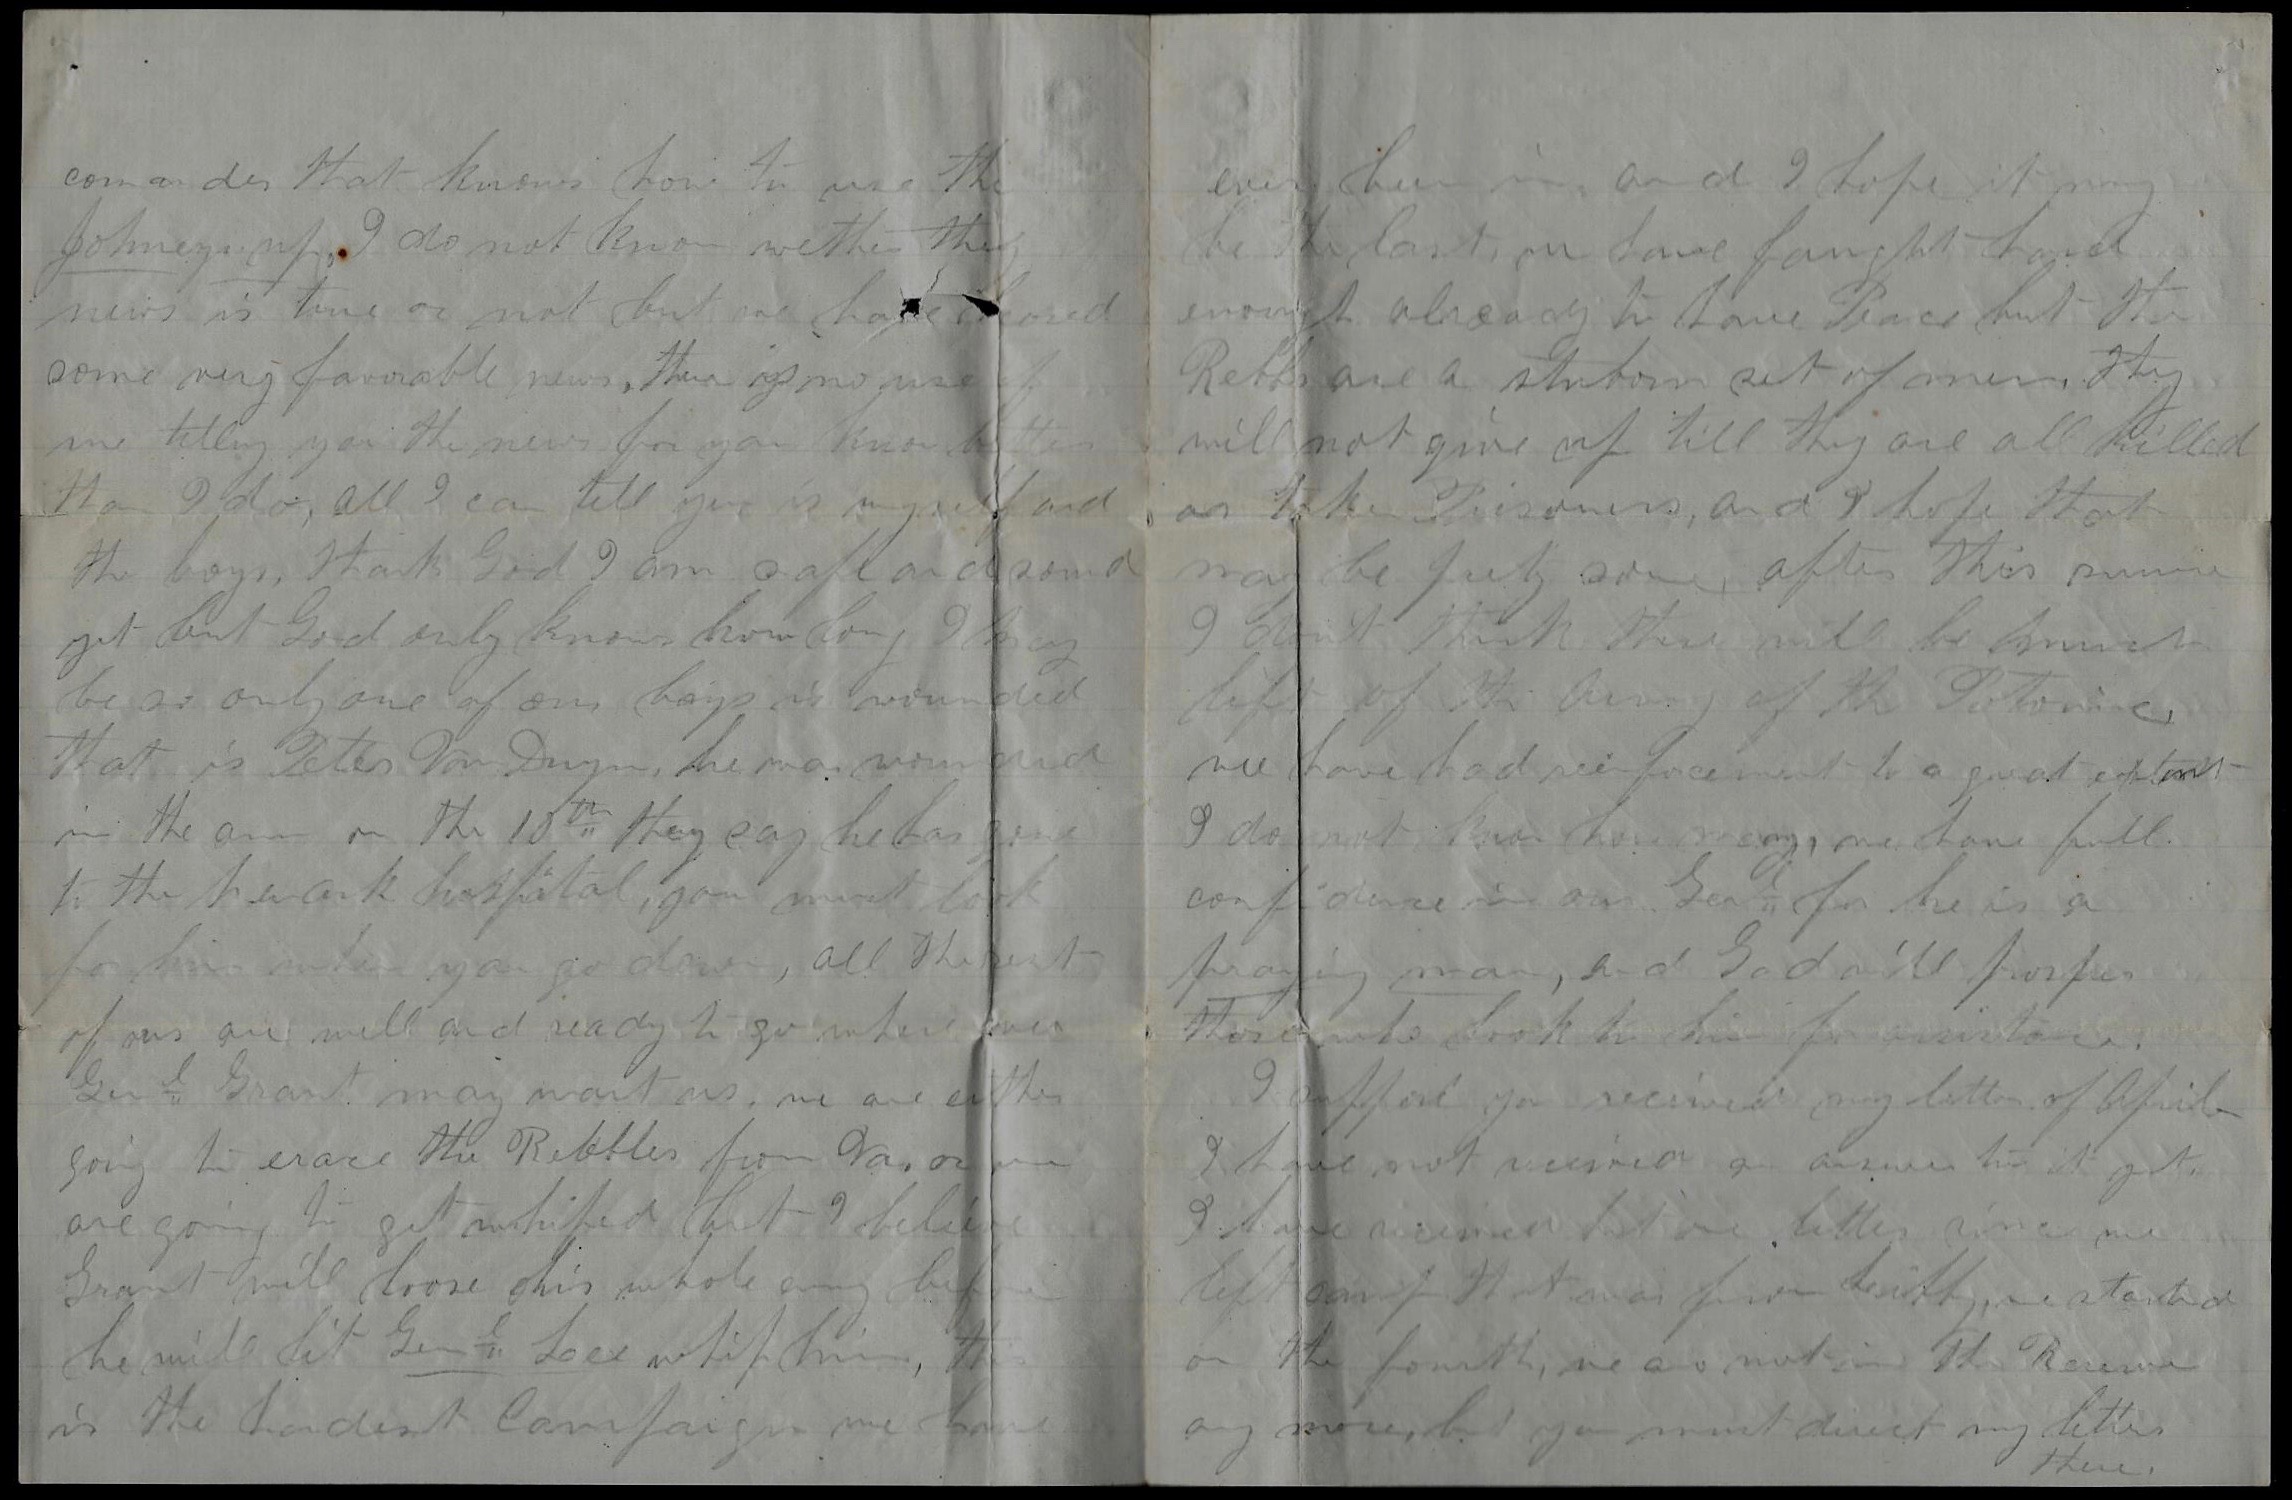 comander that knows how to use the
Johneys up, I do not know wether they
news is true or not but we have heared
some very favorable news, there is no use of
me telling you the news for you know better
than I do, all I can tell you is myself and
the boys, thank God I am safe and sound
yet but God only knows how long I may
be so only one of our boys is wounded
that is Peter Van Duyn, he was wounded
in the arm on the 10th they say he has gone
to the Newark hospital, you must look
for him when you go down, all the rest
of us are well and ready to go where ever
Genl Grant may want us, we are either
going to erace the Rebbles from Va, or we
are going to get whiped but I believe
Grant will loose his whole army before
he will let Genl Lee whip him, this
is the hardest Campaign we have
ever been in, and I hope it may
be the last, we have faught hard
enough already to have Peace but the
Rebbs are a stuborn set of men, they
will not give up till they are all killed
or taken Prisoners, and I hope that
may be prety soone, after this summe
I dont think there will be much
left of the Army of the Potomac,
we have had reinforcement to a great extent
I do not know how many, we have full
confidence in our Genl for he is a
praying man, and God will prosper
those who look to him for assistance.
I suppose you received my letter of April
I have not received an answer to it yet,
I have received but one letter since we
left camp that was from, we started
on the fourth, we are not in the Reserve
any more, but you must direct my letters
there.